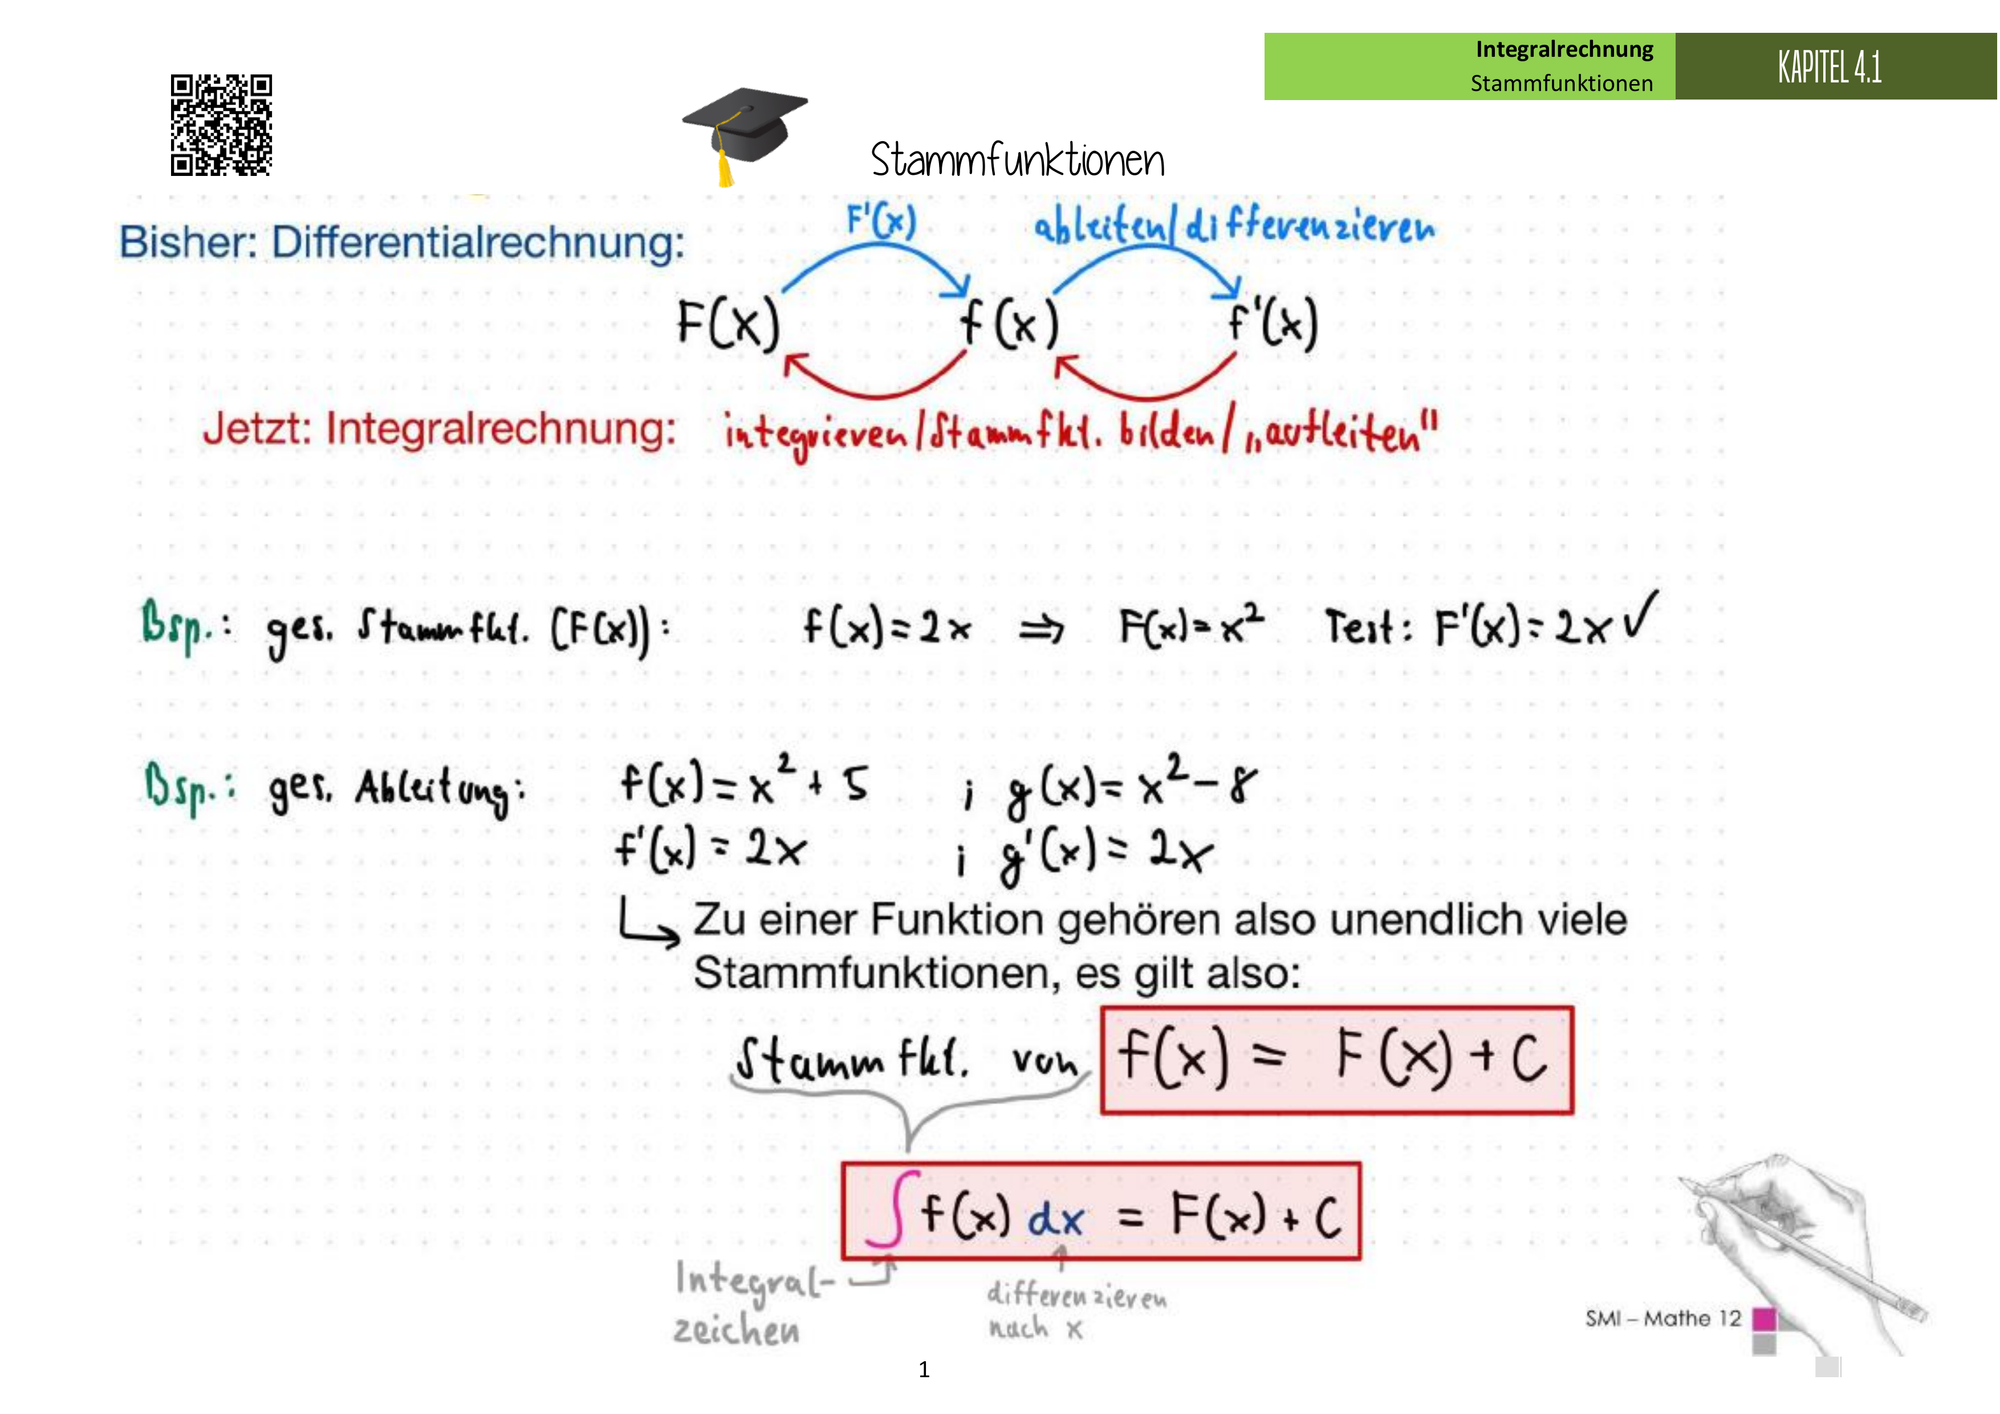 Integralrechnung
Stammfunktionen
KAPITEL 4.1
Stammfunktionen
Bisher: Differentialrechnung:
F'(x) ableiten/differenzieren
F(x) f(x) f'(x)
Jetzt: Integralrechnung: integrieren/Stammfkt. bilden/„aufleiten"
Bsp.: ges. Stammfkt. (F(x)): f(x)=2x ⇒ F(x)=x² Test: F'(x)=2x ✓
Bsp.: ges. Ableitung: f(x)=x²+5 ; g(x)=x²-8
f'(x)=2x ; g'(x)=2x
↳ Zu einer Funktion gehören also unendlich viele
Stammfunktionen, es gilt also:
Stammfkt. von f(x) = F(x)+C
∫f(x) dx = F(x)+C
Integral-
zeichen
differenzieren
nach x
SMI – Mathe 12
1